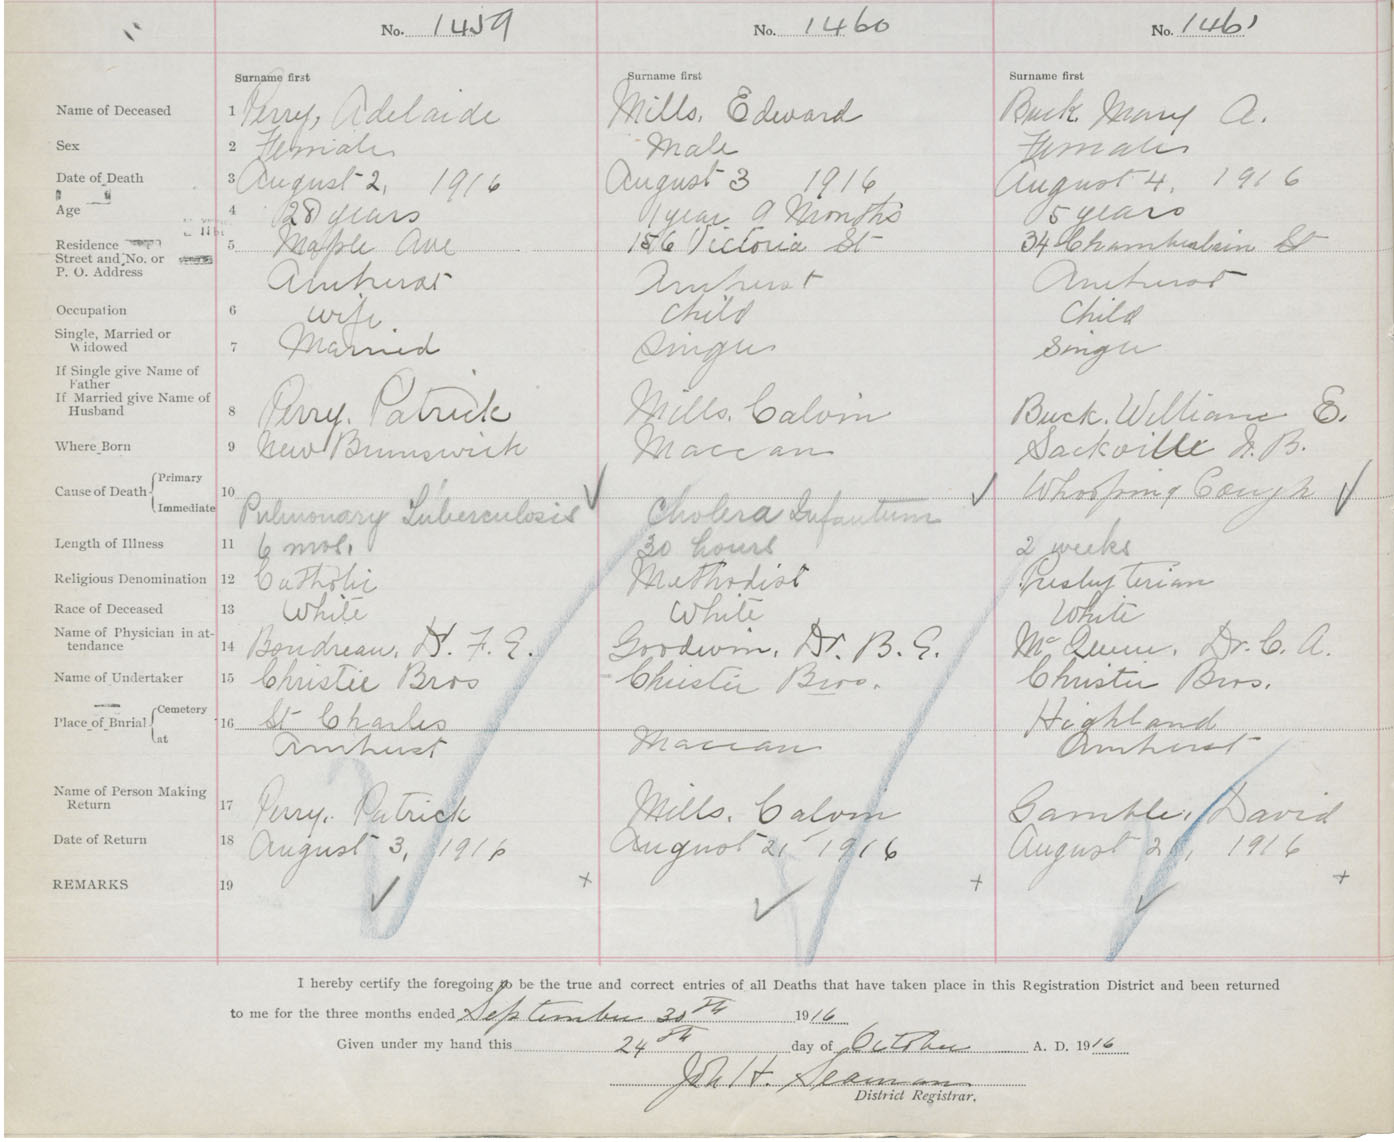 No. 1459 No. 1460 No. 1461
Surname first Surname first Surname first
Name of Deceased 1 Perry, Adelaide Mills, Edward Buck Mary A.
Sex 2 Female Male Female
Date of Death 3 August 2, 1916 August 3 1916 August 4, 1916
Age 4 28 years 1 year 9 Months 5 years
Residence 5 Maple Ave 156 Victoria St 34 Chamberlain St
Street and No. or
P. O. Address Amherst Amherst Amherst
Occupation 6 Wife Child Child
Single, Married or
Widowed 7 Married Single Single
If Single give Name of
Father
If Married give Name of
Husband 8 Perry, Patrick Mills, Calvin Buck, William E.
Where Born 9 New Brunswick Maccan Sackville N. B.
Primary
Cause of Death 10 Whooping Cough
Immediate Pulmonary Tuberculosis Cholera Infantum
Length of Illness 11 6 mos. 30 hours 2 weeks
Religious Denomination 12 Catholic Methodist Presbyterian
Race of Deceased 13 White White White
Name of Physician in at-
tendance 14 Boudreau, F. E. Goodwin, Dr. B. E. McQueen, Dr. C. A.
Name of Undertaker 15 Christie Bros Christie Bros. Christie Bros.
Cemetery
Place of Burial 16 St Charles Highland
at Amherst Maccan Amherst
Name of Person Making
Return 17 Perry, Patrick Mills, Calvin Gamble, David
Date of Return 18 August 3, 1916 August 21, 1916 August 1916
REMARKS 19 + + +
I hereby certify the foregoing to be the true and correct entries of all Deaths that have taken place in this Registration District and been returned
to me for the three months ended September 30th 1916
Given under my hand this 24th day of October A. D. 1916
John H. Seaman
District Registrar.